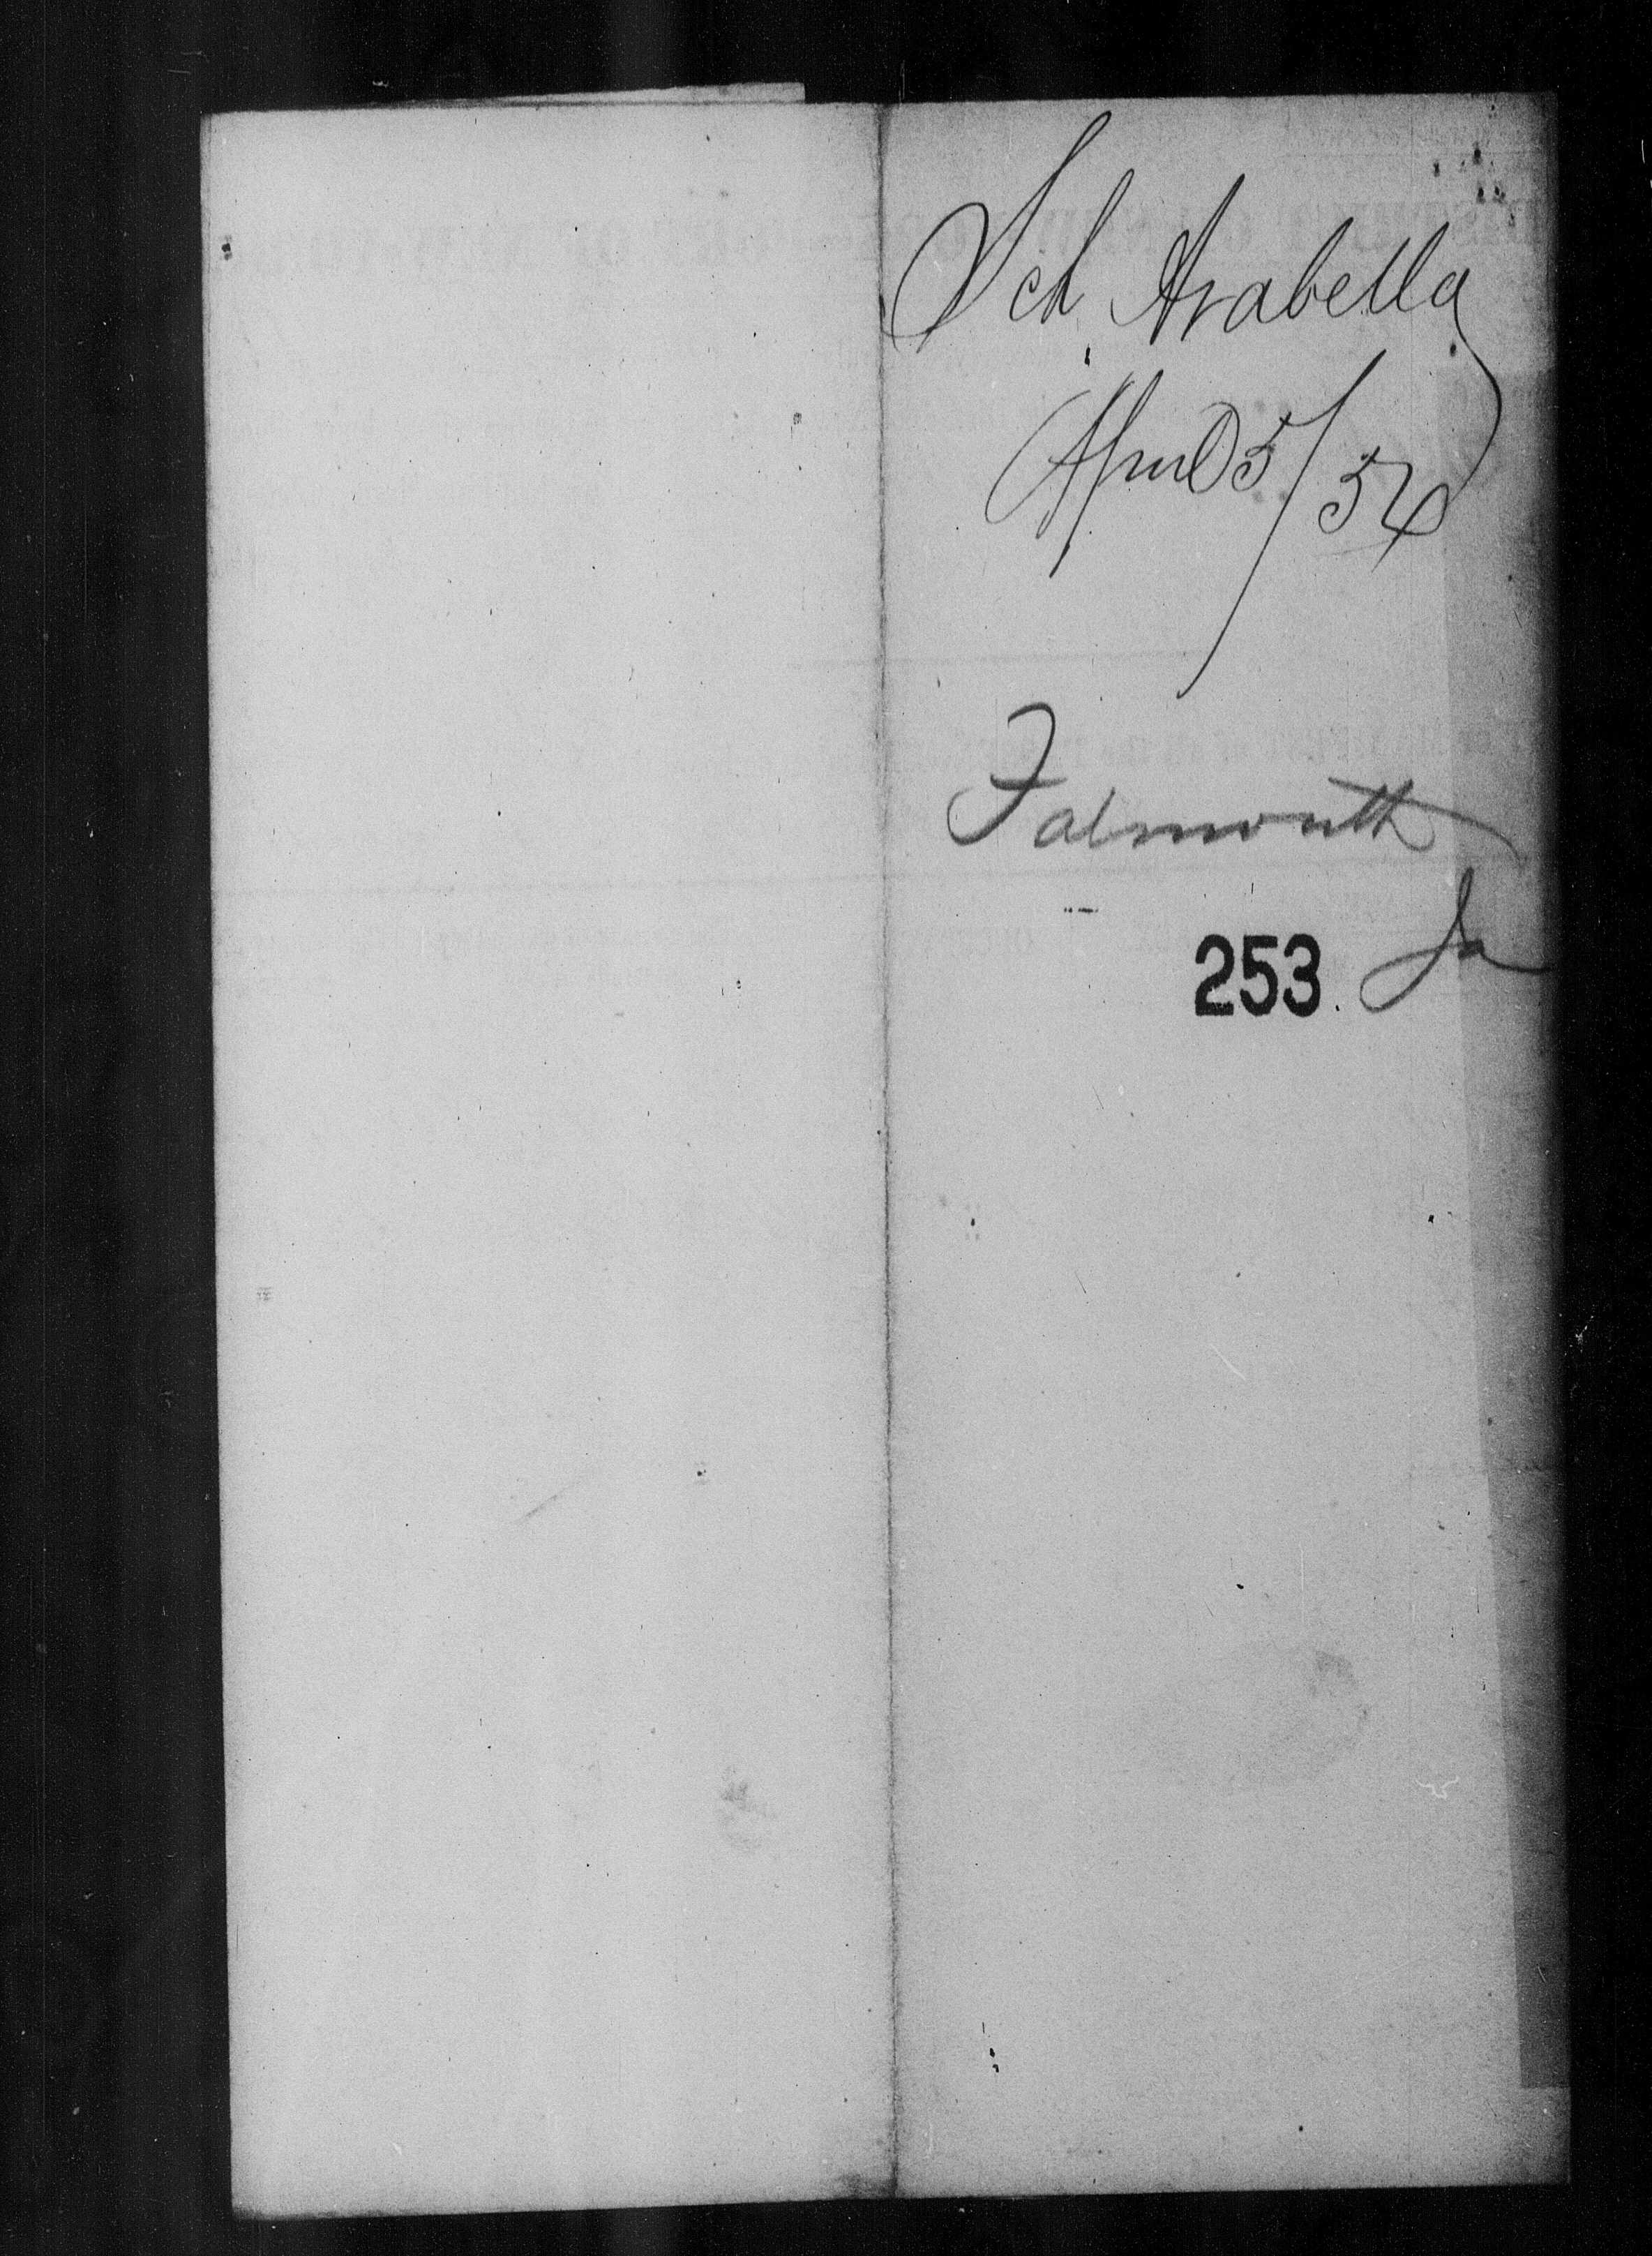 Sch Arabella
April 5/54
Falmouth
Ja
253